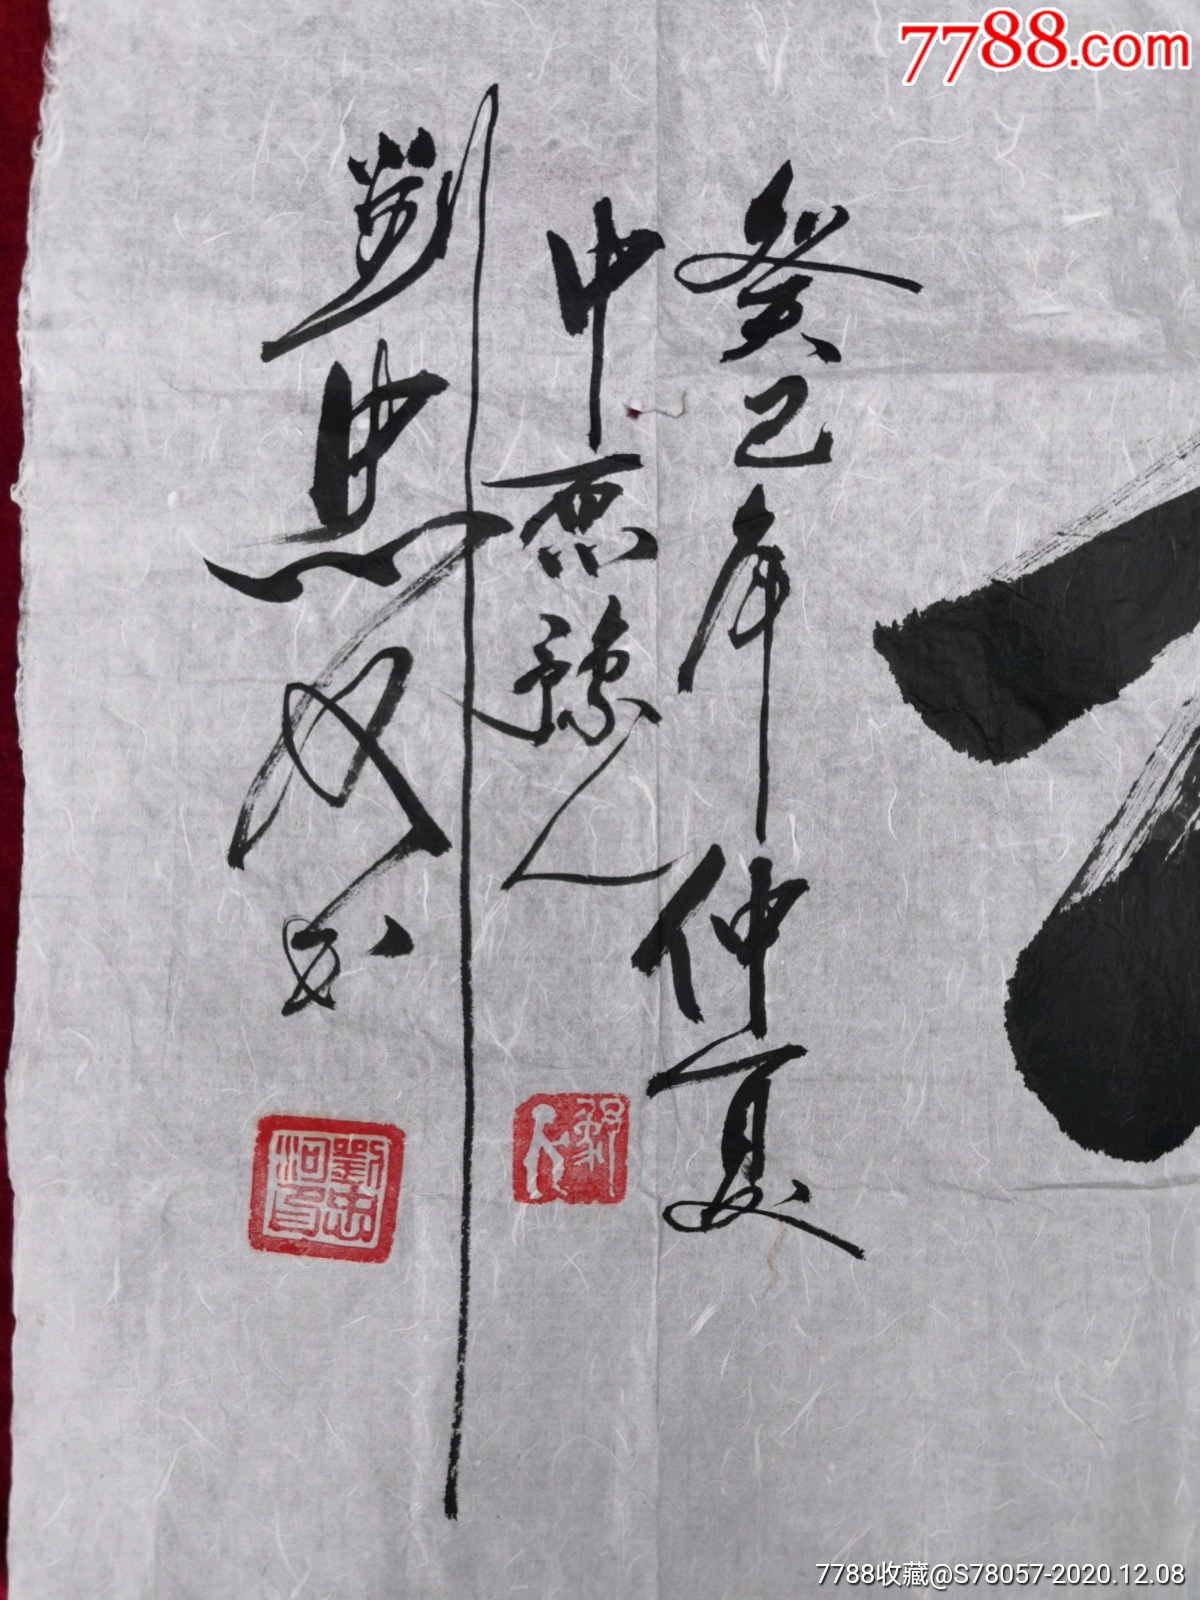 7788.com
癸巳年仲夏
中原豫人
劉忠河书
豫人
劉忠河印
7788收藏@S78057-2020.12.08